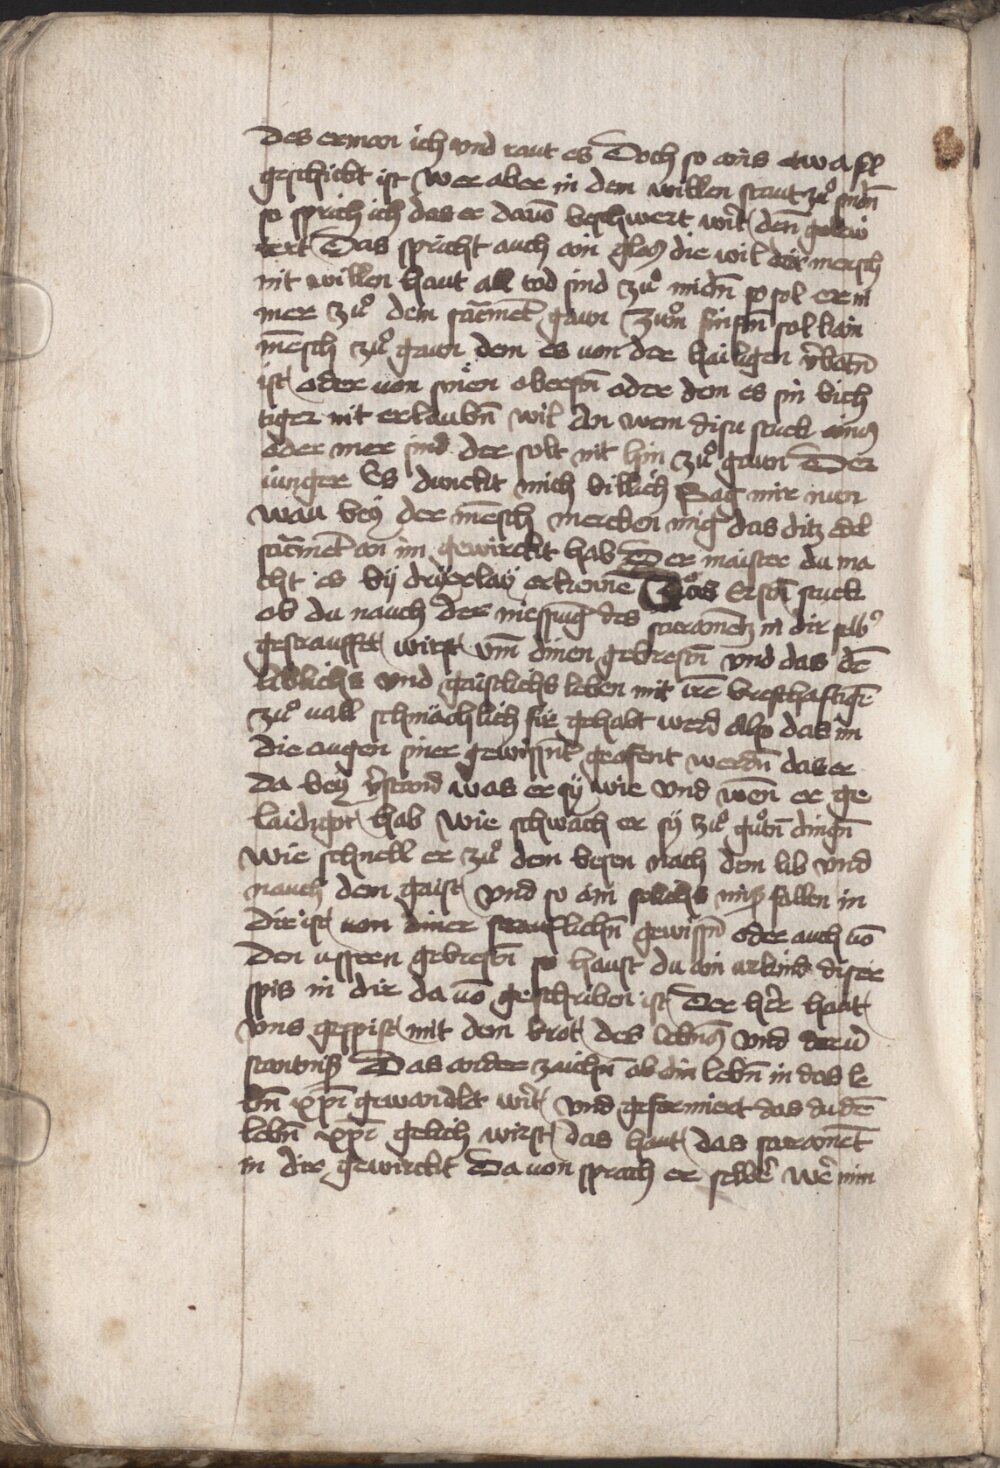 des erman ich vnd raut es Doch so ains etwa fil
geschickt ist wer aber in dem willen staut zuͦ sündn̄
so sprich ich das er dauō beschwert wirt den
text Das spricht auch ain glos die wil der mensch
nit willen haut all tod sünd zuͦ midn̄ so sol er ni
mer zuͦ dem sacͣmēt gaun Zum sol kain
mēsch zuͦ gaun dem es von der hailigen v̄botn̄
ist oder von sinen oberstn̄ oder dem es sin bich
tiger nit erlaubn̄ wil An wem disu stuck ains
oder mer sind der solt nit hin zuͦ gaun Der
iunger Es dunckt mich billich Sag mir nun
wau bey der mēsch mercken mug das ditz edel
sacͣmēt an im gewirckt hab Der maister du ma
cht es by dryerlay erkenne Das Erst stuck
ob du nauch der niessung des sacramētz in dir selbs
gestraufft wirst vm̄ dinen gebrestn̄ vnd das dē
liblichs vnd gaistlichs leben mit irē
zuͦ uall schmächlich für gehabt werd Also das im
die augen siner gewissn̄ geofent werdn̄ das er
da bey v̄stand was er sy wie vnd wen̄ er ge
laidzgot hab wie schwach er sy zuͦ guͦtn̄ dingn̄
wie schnell er zuͦ dem besen nach dem lib vnd
nauch dem gaist vnd so ain sollichs mis fallen in
dir ist von diner straflichn̄ gewissn̄ oder auch uō
den ussern gebrestn̄ so haust du ain urkünd diser
spis in dir da uō geschriben ist Der her haut
vns gespist mit dem brot des lebens vnd der v̄
stantnis Das ander zaichn̄ ob din lebn̄ in das le
bn̄ xp̄i gewandlet wirt vnd geformiert das du dē
lebn̄ xp̄i gelich wirst das haut das sacramēt
in dir gewirckt Da von sprach er selber wer min